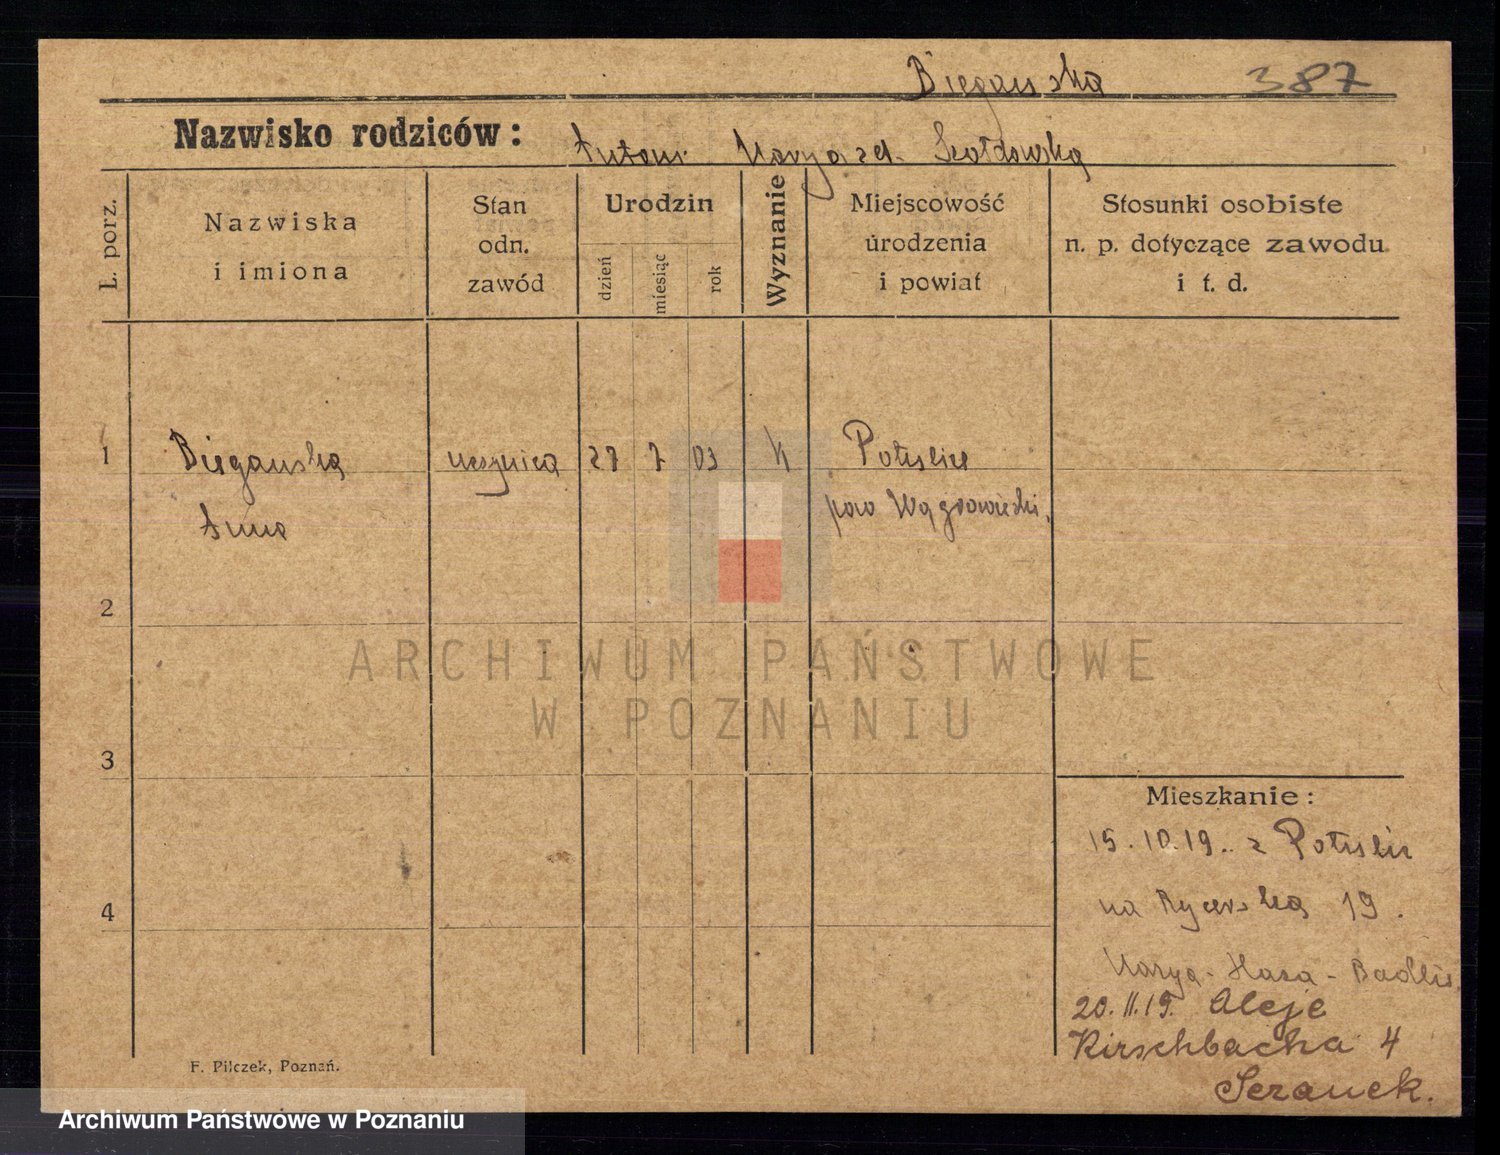 Biegańska 387
Nazwisko rodziców: Antoni Marya
L. porz.
Nazwiska
i imiona
Stan
odn.
zawód
Urodzin
dzień
miesiąc
rok
Wyznanie
Miejscowość
urodzenia
i powiat
Stosunki osobiste
n. p. dotyczące zawodu
i t. d.
1 Biegańska uczenica 27 7 03 K Potulice
Anna pow Wągrowiecki.
2
3
4
ARCHIWUM PAŃSTWOWE
W POZNANIU
Mieszkanie:
15.10.19. z Potulic
na Rycerską 19.
Marya - Hasa -
20.11.19. Aleje
Kirschbacha 4
F. Pilczek, Poznań.
Archiwum Państwowe w Poznaniu